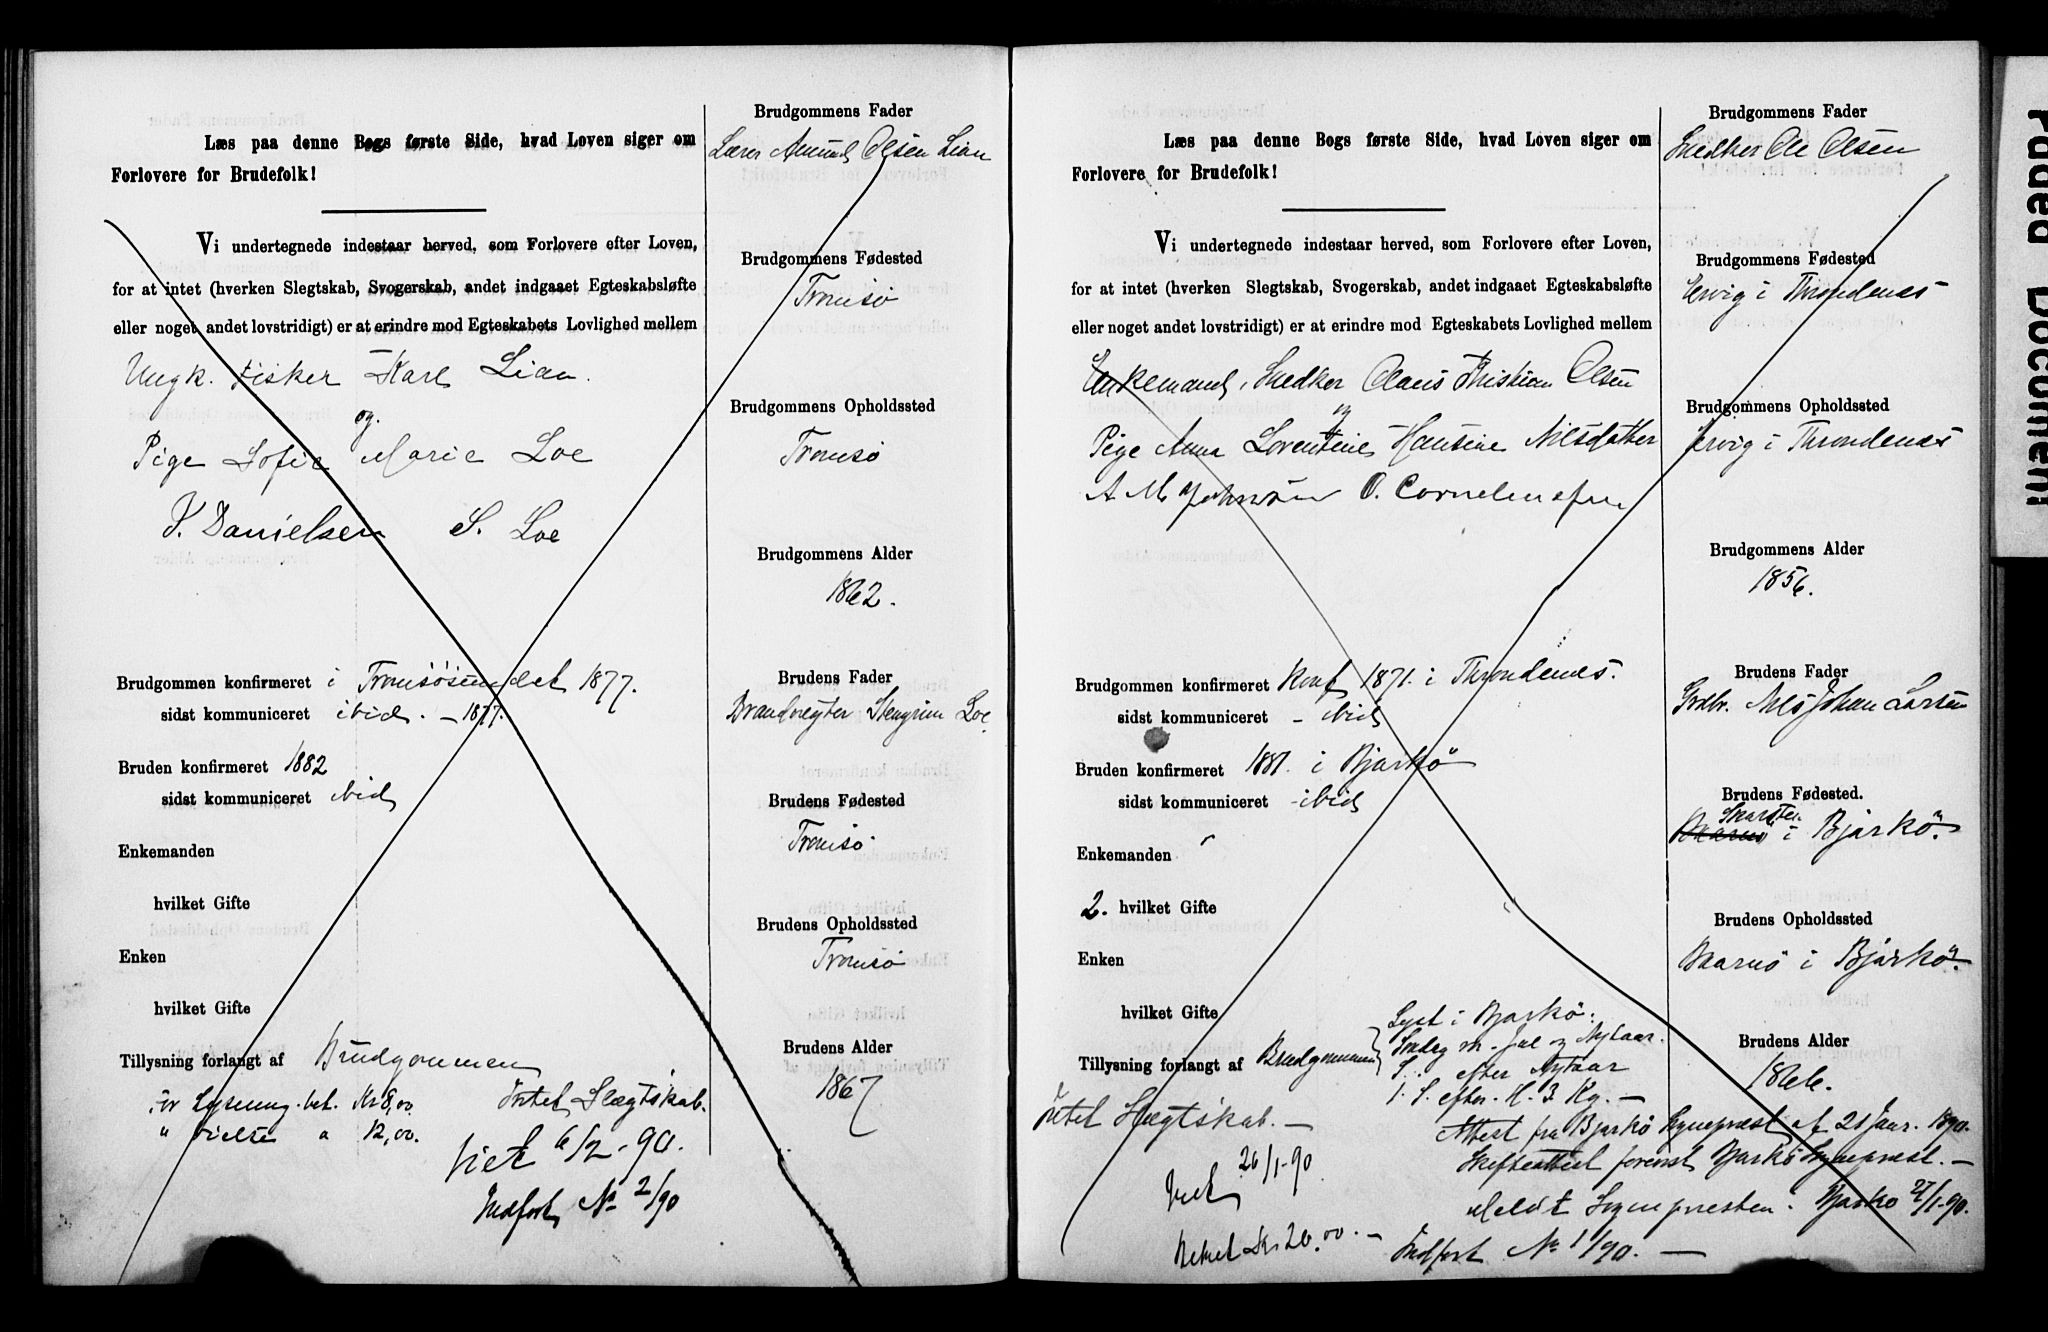 Læs paa denne Bogs første Side, hvad Loven siger om
Forlovere for Brudefolk!
Vi undertegnede indestaar herved, som Forlovere efter Loven,
for at intet (hverken Slegtskab, Svogerskab, andet indgaaet Egteskabsløfte
eller noget andet lovstridigt) er at erindre mod Egteskabets Lovlighed mellem
Ungk. Fisker Karl Lian.
og
Pige Sofie Marie Loe
P. Danielsen S. Loe
Brudgommen konfirmeret i Tromsøsundet 1877.
sidst kommuniceret ibid. - 1877.
Bruden konfirmeret 1882
sidst kommuniceret ibid
Enkemanden
hvilket Gifte
Enken
hvilket Gifte
Tillysning forlangt af Brudgommen
For Lysning. bet. Kr 8,00. Intet Slægtskab.
" vielse " 12,00.
Viet 6/2-90.
Indført No 2/90
Brudgommens Fader
Lærer Amund Olsen Lian
Brudgommens Fødested
Tromsö
Brudgommens Opholdssted
Tromsö
Brudgommens Alder
1862.
Brudens Fader
Brandvegter Stengrim Loe
Brudens Fødested
Tromsö
Brudens Opholdssted
Tromsö
Brudens Alder
1867
Læs paa denne Bogs første Side, hvad Loven siger om
Forlovere for Brudefolk!
Vi undertegnede indestaar herved, som Forlovere efter Loven,
for at intet (hverken Slegtskab, Svogerskab, andet indgaaet Egteskabsløfte
eller noget andet lovstridigt) er at erindre mod Egteskabets Lovlighed mellem
Enkemand, Snedker Olaus Kristian Olsen
og
Pige Anna Lorentine Hansine Nilsdatter
A M Johnsen O. Cornelius
Brudgommen konfirmeret Konf 1871. i Throndenes.
sidst kommuniceret - ibid
Bruden konfirmeret 1881. i Bjarkö
sidst kommuniceret - ibid
Enkemanden
2. hvilket Gifte
Enken
hvilket Gifte
Tillysning forlangt af Brudgommen
Lyst i Bjarkö:
Søndag m. Jul og Nytaar.
S. efter Nytaar
1. S. efter H. 3 Kg. -
Intet Slægtskab. -
Attest fra Bjarkö Sognepræst af 21 Jan. 1890.
Skifteattest forevist Bjarkö Sognepræst. -
Viet 26/1-90
Meldt Sognepresten i Bjarkö 27/1-90.
Betalt Kr 20.00. -
Indført No 1/90. -
Brudgommens Fader
Snedker Ole Olsen
Brudgommens Fødested
Ervig i Throndenes
Brudgommens Opholdssted
Ervig i Throndenes
Brudgommens Alder
1856.
Brudens Fader
Grdbr. Nils Johan Larsen
Brudens Fødested.
i Bjarkö.
Brudens Opholdssted
i Bjarkö.
Brudens Alder
1866.
Faded Document